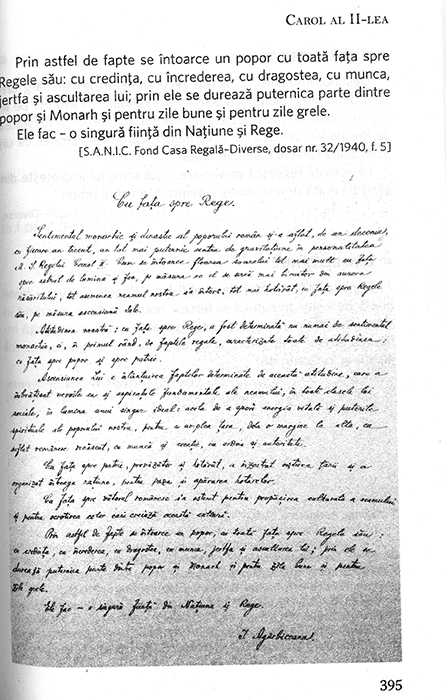 CAROL AL II-LEA
Prin astfel de fapte se întoarce un popor cu toată fața spre
Regele său: cu credința, cu încrederea, cu dragostea, cu munca,
jertfa și ascultarea lui; prin ele se durează puternica parte dintre
popor și Monarh și pentru zile bune și pentru zile grele.
Ele fac – o singură ființă din Națiune și Rege.
[S.A.N.I.C. Fond Casa Regală–Diverse, dosar nr. 32/1940, f. 5]
Cu fața spre Rege.
Sentimentul monarhic și dinastic al poporului român și-a aflat, de un deceniu,
cu fiecare an trecut, un tot mai puternic centru de gravitațiune în personalitatea
M. S. Regelui Carol II. Cum se întoarce floarea soarelui tot mai mult cu fața
spre astrul de lumină și foc, pe măsură ce el se urcă mai biruitor din aurora
răsăritului, tot asemenea neamul nostru s'a întors, tot mai hotărât, cu fața spre Regele
său, pe măsura ascensiunii Sale.
Atitudinea noastră: cu fața spre Rege, a fost determinată nu numai de sentimentul
monarhic, ci, în primul rând, de faptele regale, caracterizate toate de atitudinea:
cu fața spre popor și spre patrie.
Ascensiunea Lui e înlănțuirea faptelor determinate de această atitudine, care a
îmbrățișat nevoile și aspirațiile fundamentale ale neamului, în toate clasele lui
sociale, în lumina unui singur ideal: acela de a spori energia vitală și puterile
spirituale ale poporului nostru, pentru a umplea țara, dela o margine la alta, cu
suflet românesc renăscut, cu muncă și creație, cu ordine și autoritate.
Cu fața spre patrie, prevăzător și hotărât, a înzestrat oștirea țării și a
organizat întreaga națiune, pentru paza și apărarea hotarelor.
Cu fața spre viitorul românesc în patru pentru propășirea culturală a neamului
și pentru ocrotirea celor cari crează această cultură.
Prin astfel de fapte se întoarce un popor, cu toată fața spre Regele său:
cu credința, cu încrederea, cu dragostea, cu munca, jertfa și ascultarea lui; prin ele se
durează puternica punte dintre popor și Monarh și pentru zile bune și pentru
zile grele.
Ele fac – o singură ființă din Națiune și Rege.
I. Agârbiceanu
395